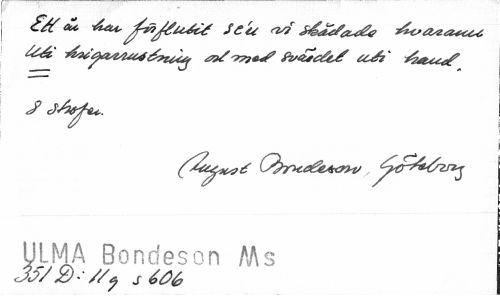 Ett år har förflutit se'n vi skådade hvarann
Uti krigarrustning och med svärdet uti hand.
8 strofer.
August Bondeson, Göteborg
ULMA Bondeson Ms
351 D: 11 q s 606